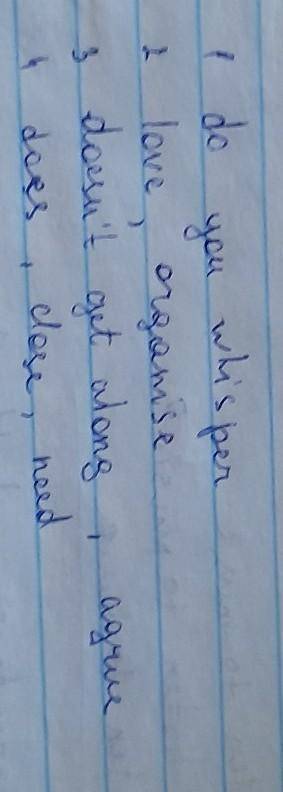 1 do you whisper
2 love, organise
3 doesn't get along, agrue
4 does, close, need